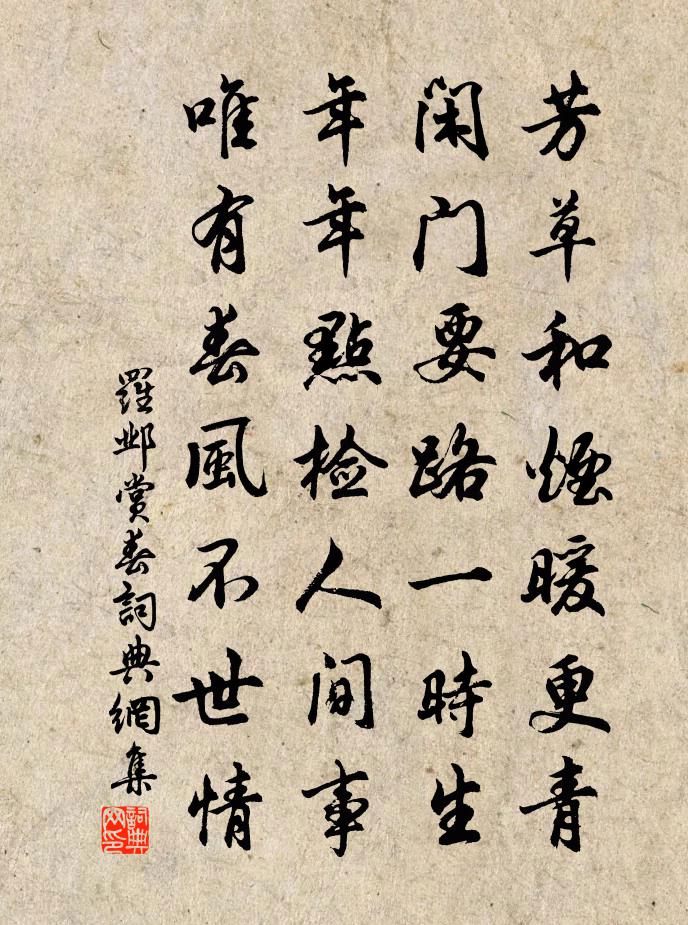 芳草和煙暖更青
闲门要路一時生
年年點检人间事
唯有春風不世情
羅邺赏春詞典網集
詞典网印